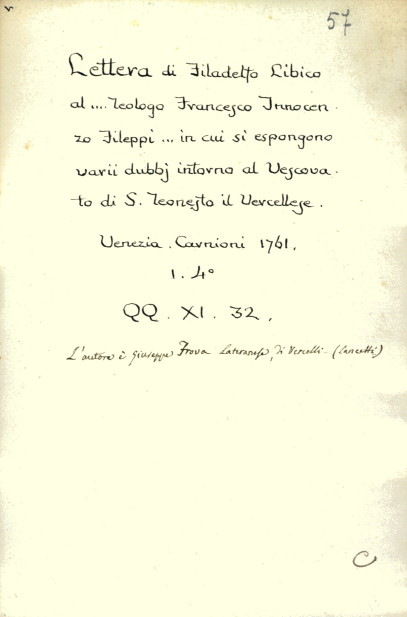 57
Lettera di Filadelfo Libico
al .... Teologo Francesco Innocen.
zo Fileppi ... in cui si espongono
varii dubbj intorno al Vescova.
to di S. Teonesto il Vercellese.
Venezia. Carnioni 1761.
1. 4°
QQ. XI. 32.
L'autore è Giuseppe Frova Lateranese, di Vercelli - (Lancetti)
C